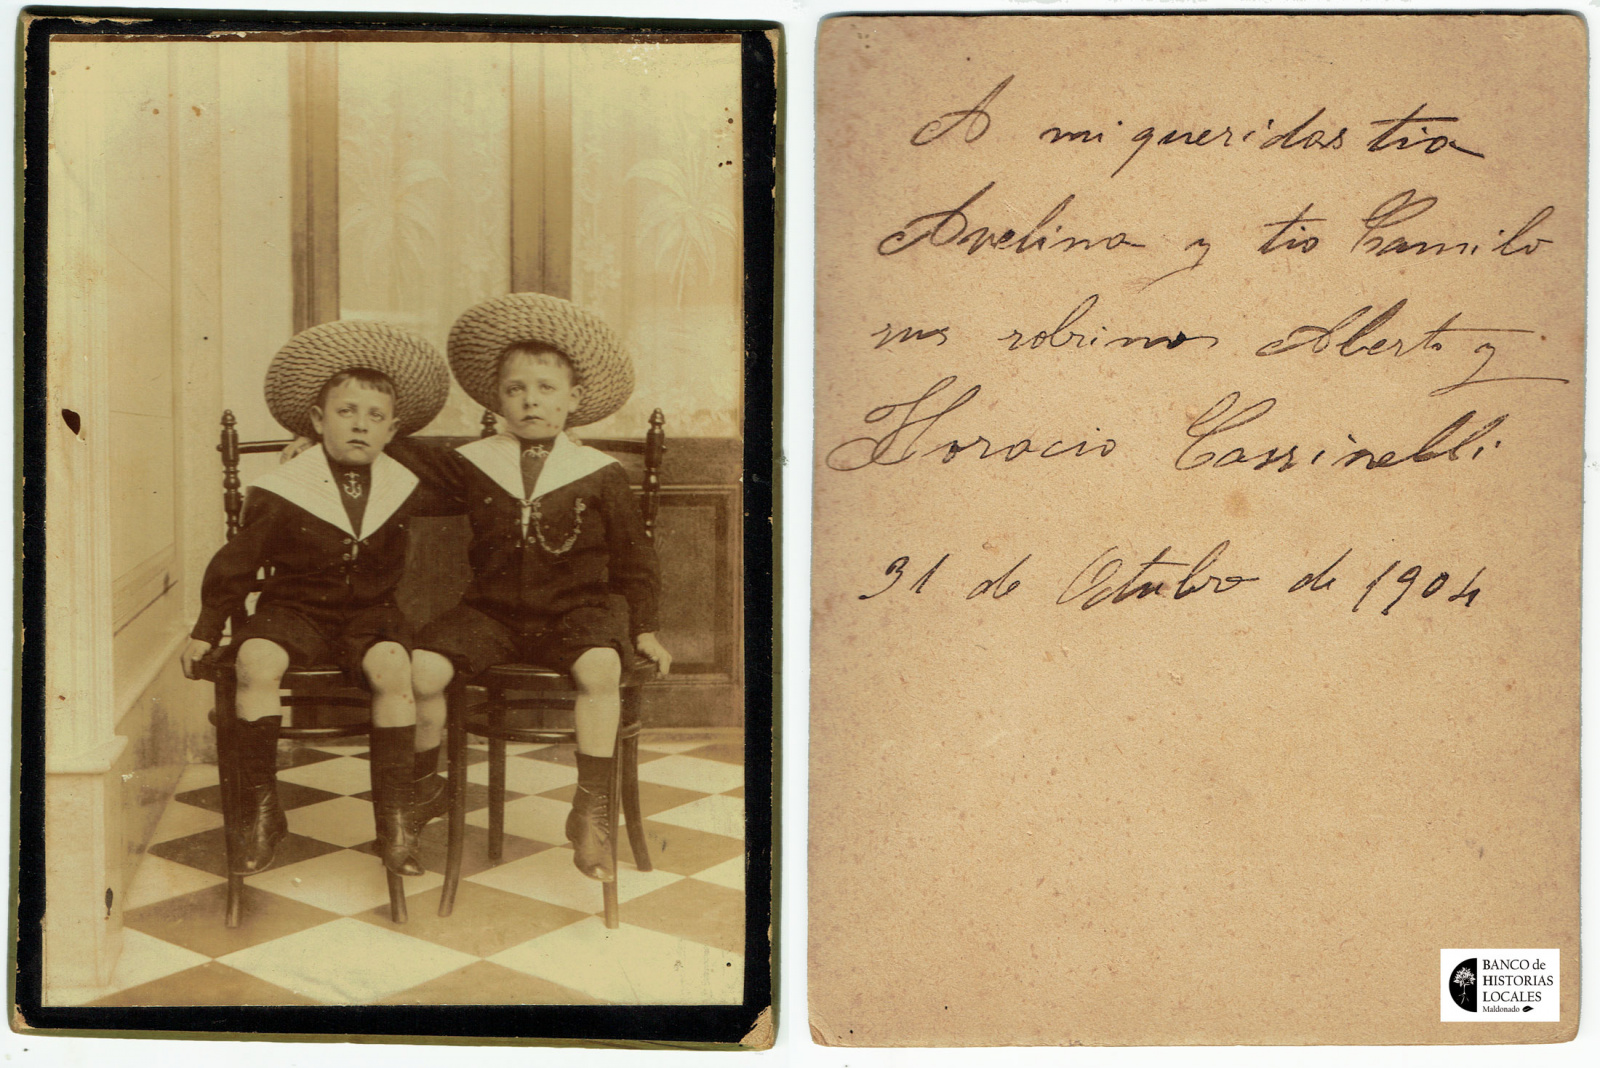 A mi queridos tia
Avelina y tio Camilo
sus sobrinos Alberto y
Horacio Cassinelli
31 de Octubre de 1904
BANCO de
HISTORIAS
LOCALES
Maldonado